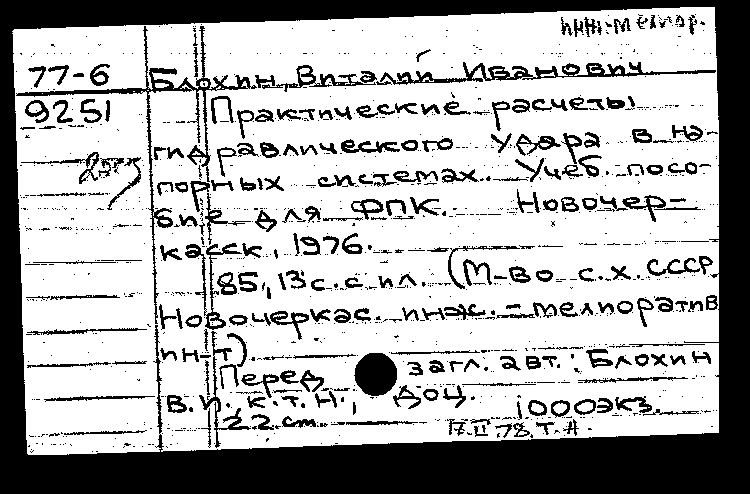 инж.-мелиор.
77-6 Блохин, Виталий Иванович
9251 Практические расчеты
гидравлического удара в на-
порных системах. Учеб. посо-
бие для ФПК. Новочер-
касск, 1976.
85, 13 с. с ил. (М-во с.х. СССР.
Новочеркас. инж.-мелиоратив
ин-т).
Перед загл. авт.: Блохин
В.И., к.т.н., доц.
1000экз.
22 см.
17.II.78. Т.А.